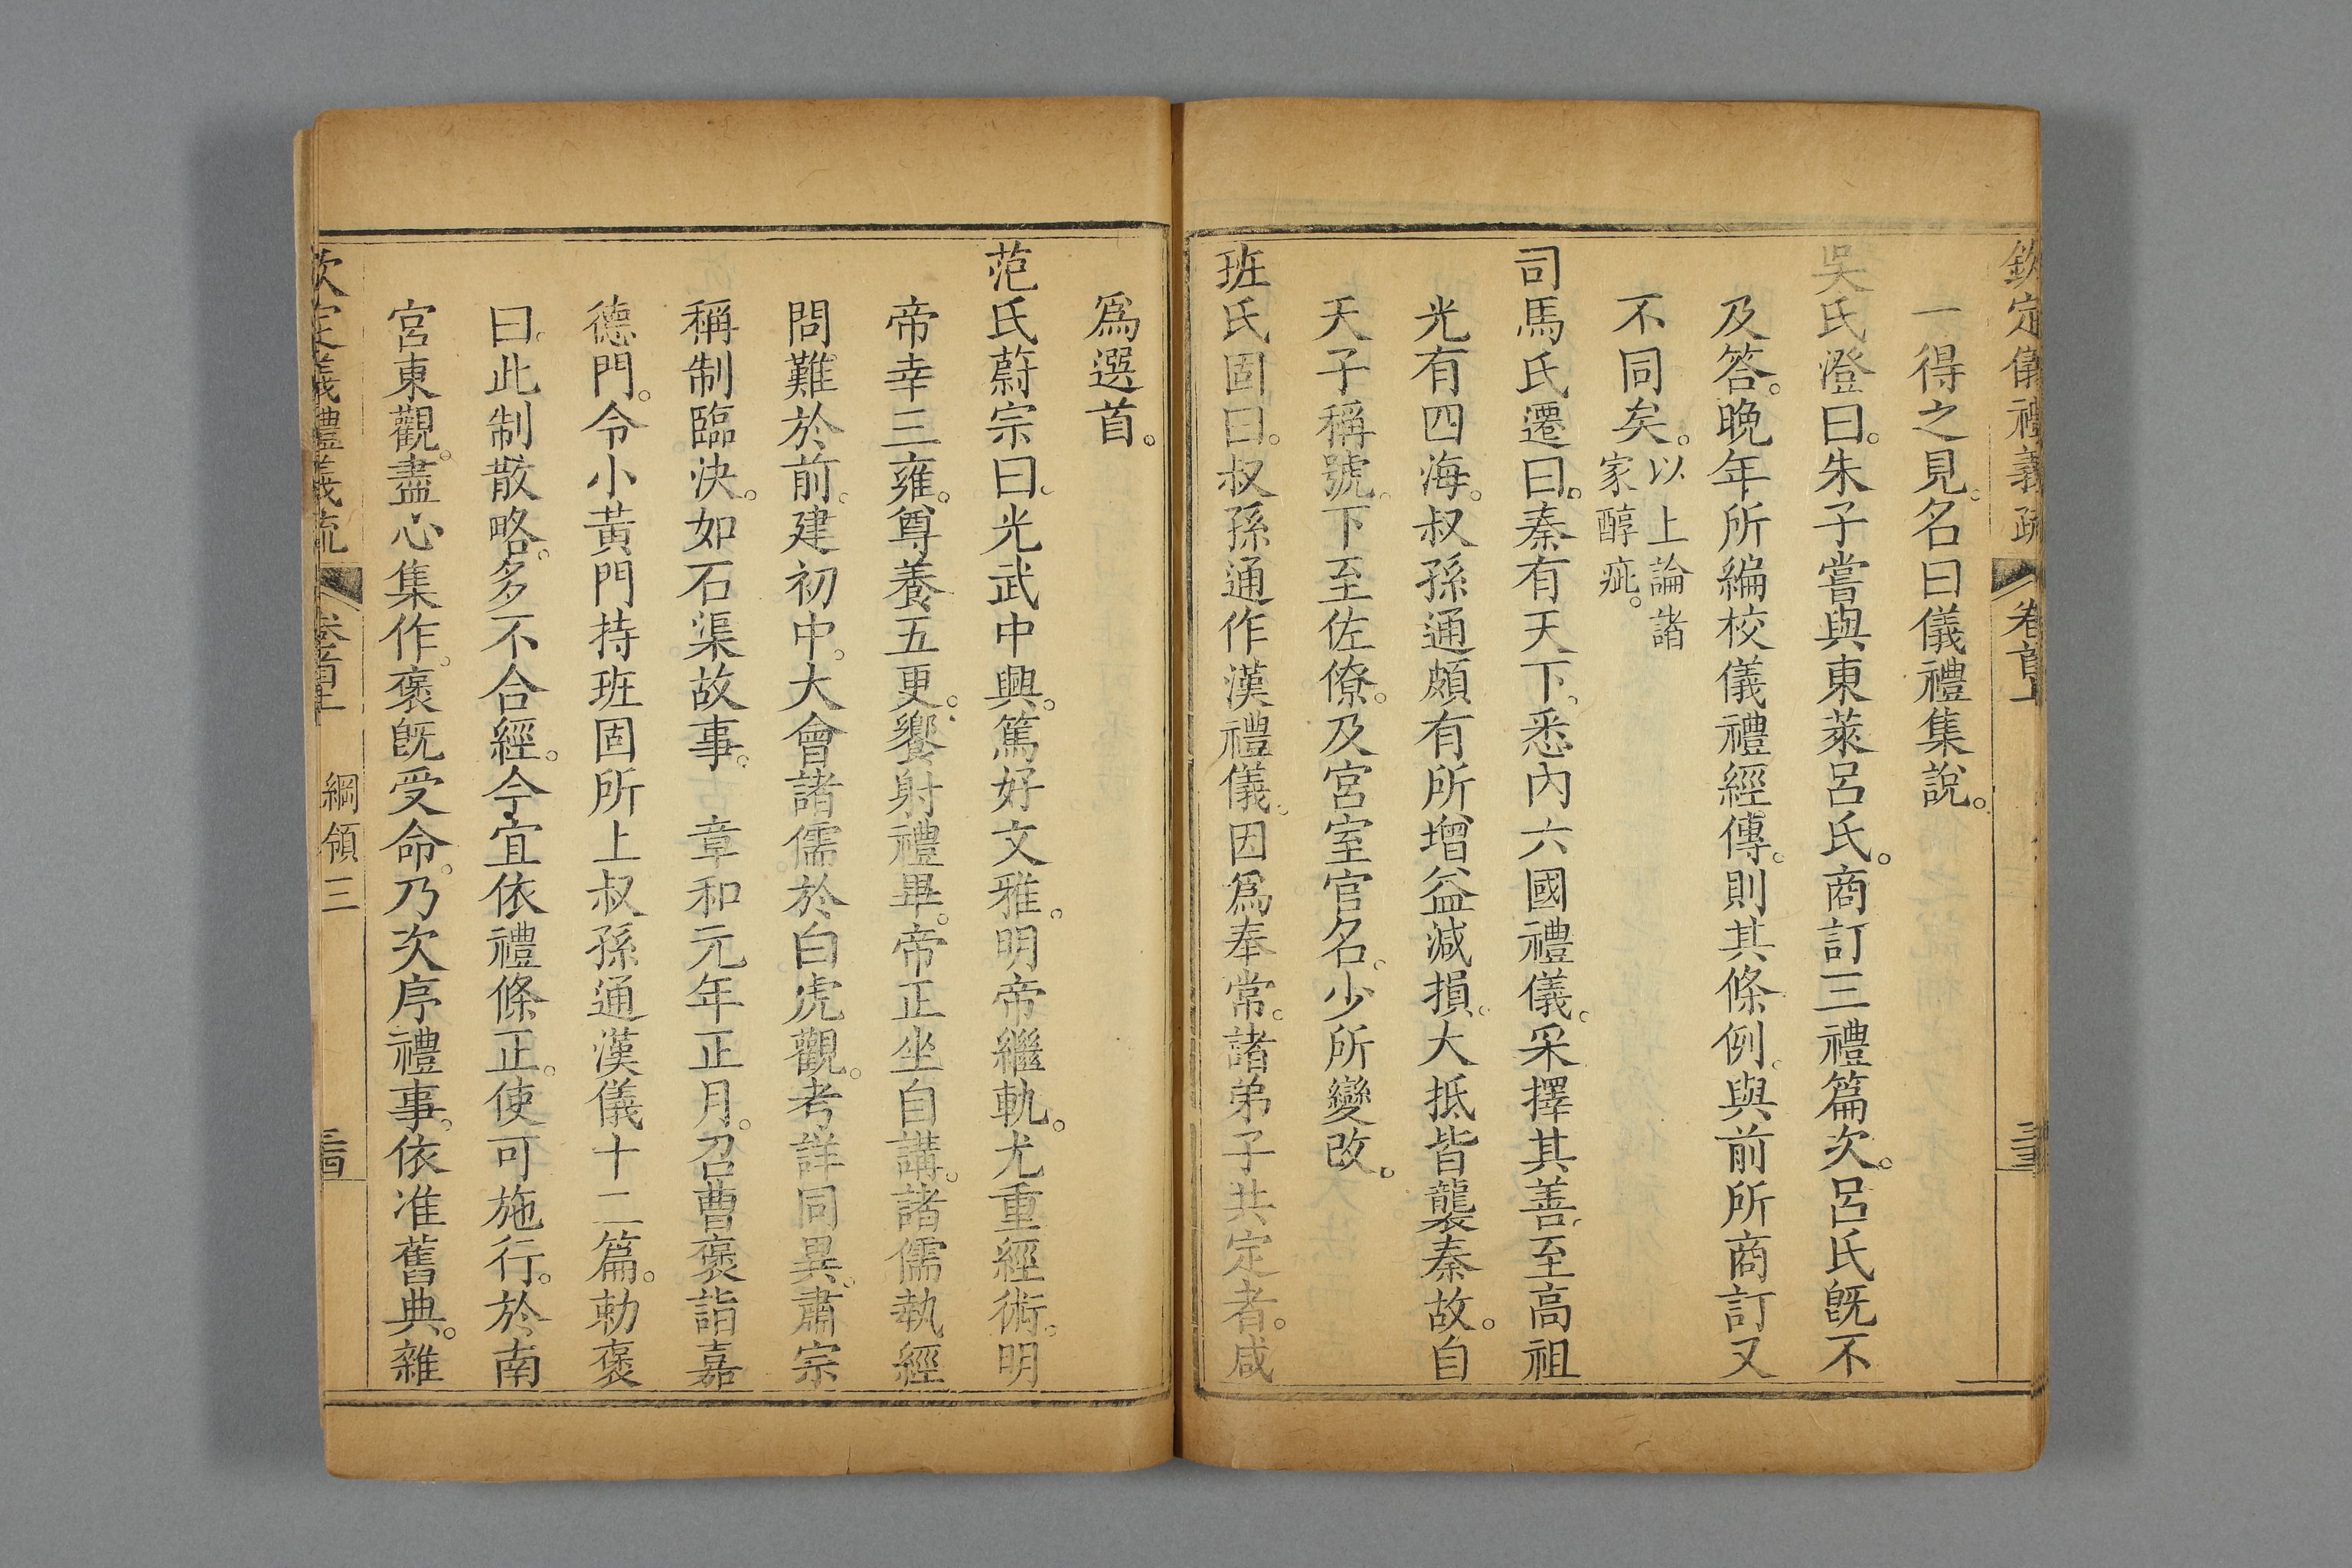 欽定儀禮義疏 卷首上
一得之見。名曰儀禮集說。
吳氏澄曰。朱子嘗與東萊呂氏。商訂三禮篇次。呂氏旣不
及答。晚年所編校儀禮經傳。則其條例。與前所商訂又
不同矣。以上論諸
家醇疵。
司馬氏遷曰。秦有天下。悉內六國禮儀。采擇其善。至高祖
光有四海。叔孫通頗有所增益減損。大抵皆襲秦故。自
天子稱號。下至佐僚。及宮室官名。少所變改。
班氏固曰。叔孫通作漢禮儀。因爲奉常。諸弟子共定者。咸
爲選首。
范氏蔚宗曰。光武中興。篤好文雅。明帝繼軌。尤重經術。明
帝幸三雍。尊養五更。饗射禮畢。帝正坐自講。諸儒執經
問難於前。建初中。大會諸儒於白虎觀。考詳同異。肅宗
稱制臨決。如石渠故事。 章和元年正月。召曹褒詣嘉
德門。令小黃門持班固所上叔孫通漢儀十二篇。勅褒
曰。此制散略。多不合經。今宜依禮條正。使可施行。於南
宮東觀。盡心集作。褒旣受命。乃次序禮事。依准舊典。雜
欽定儀禮義疏 卷首上 綱領三